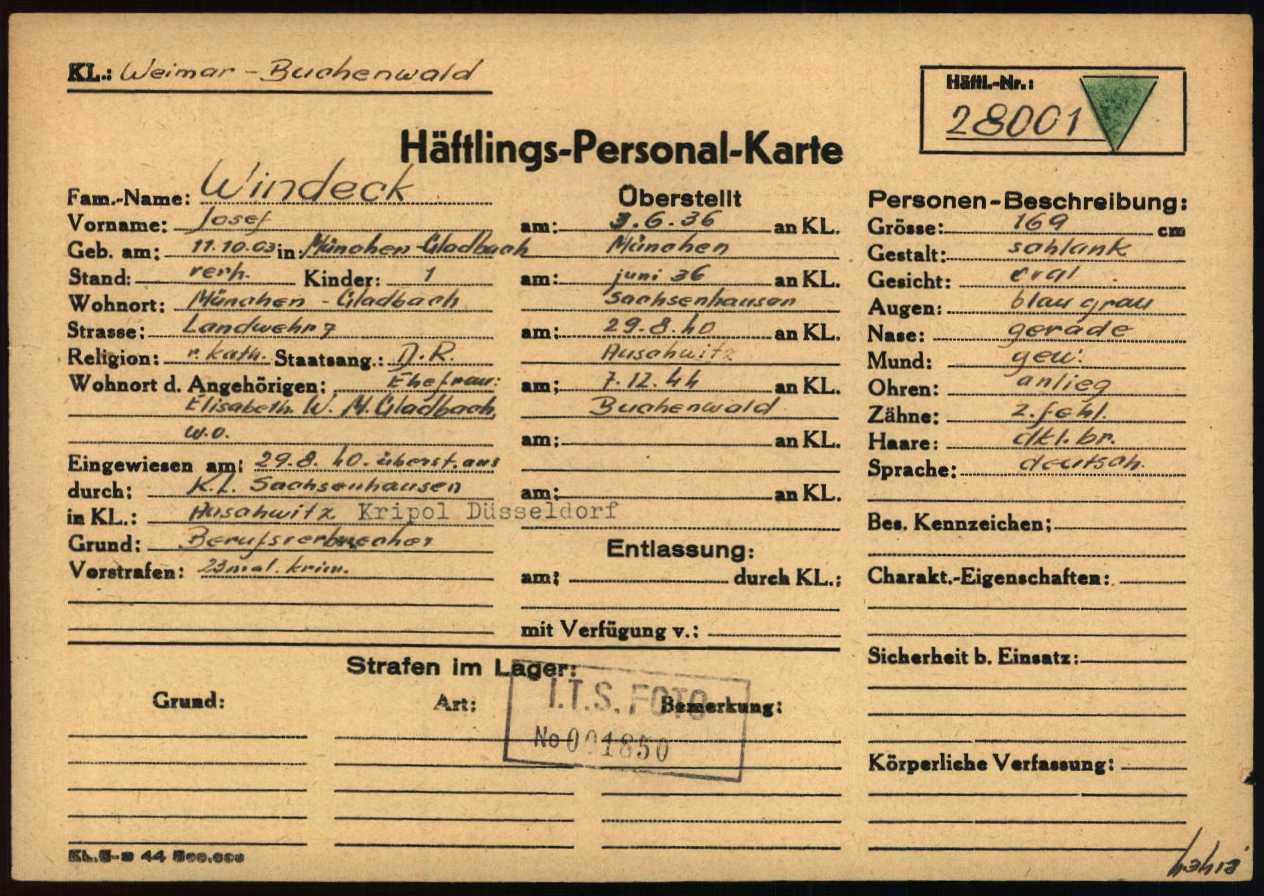 KL.: Weimar - Buchenwald
Häftl.-Nr.:
28001
Häftlings-Personal-Karte
Fam.-Name: Windeck
Vorname: Josef
Geb. am: 11.10.03 in München-Gladbach
Stand: verh. Kinder: 1
Wohnort: München - Gladbach
Strasse: Landwehr 7
Religion: r. kath. Staatsang.: D.R.
Wohnort d. Angehörigen: Ehefrau:
Elisabeth W. M. Gladbach
w.o.
Eingewiesen am: 29.8.40. überst. aus
durch: K.L. Sachsenhausen
in KL.: Auschwitz Kripol Düsseldorf
Grund: Berufsverbrecher
Vorstrafen: 23 mal. krim.
Überstellt
am: 3.6.36 an KL.
München
am: juni 36 an KL.
Sachsenhausen
am: 29.8.40 an KL.
Auschwitz
am: 7.12.44 an KL.
Buchenwald
am: an KL.
am: an KL.
Entlassung:
am: durch KL.:
mit Verfügung v.:
Personen-Beschreibung:
Grösse: 169 cm
Gestalt: schlank
Gesicht: oval
Augen: blau grau
Nase: gerade
Mund: gew.
Ohren: anlieg
Zähne: 2. fehl.
Haare: dkl. br.
Sprache: deutsch.
Bes. Kennzeichen:
Charakt.-Eigenschaften:
Sicherheit b. Einsatz:
Körperliche Verfassung:
Strafen im Lager:
Grund: Art: Bemerkung:
I.T.S. FOTO
No 001850